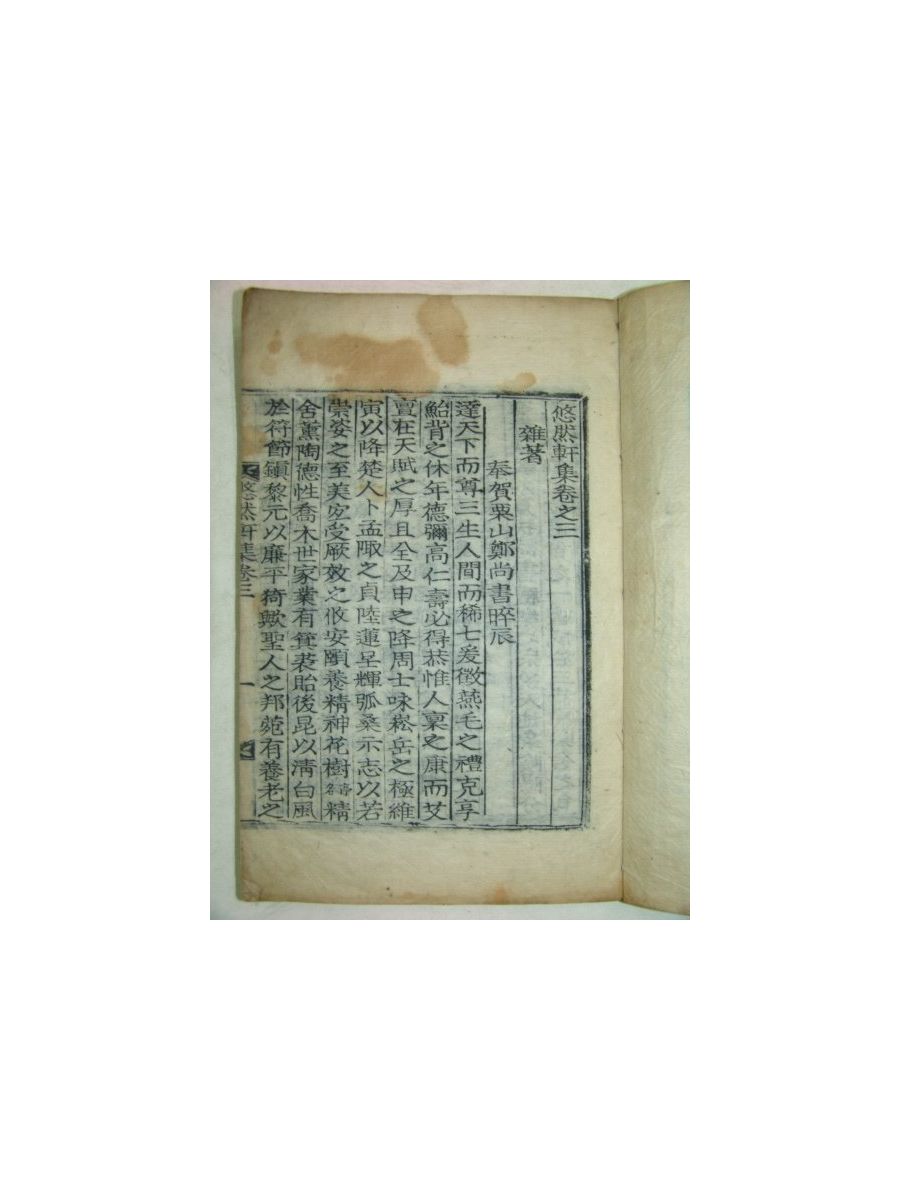 悠然軒集卷之三
雜著
奉賀栗山鄭尚書晬辰
達天下而尊三生人間而稀七爰徵燕毛之禮克享
鮐背之休年德彌高仁壽必得恭惟人稟之康而艾
亶在天賦之厚且全及申之降周士咏崧岳之極維
寅以降楚人卜孟陬之貞陸蓮呈輝弧桑示志以若
崇姿之至美宐受厥效之攸安頤養精神花樹精
舍薰陶德性喬木世家業有箕裘貽後昆以淸白風
於符節鎭黎元以廉平猗歟聖人之邦菀有養老之
悠然軒集卷三
一